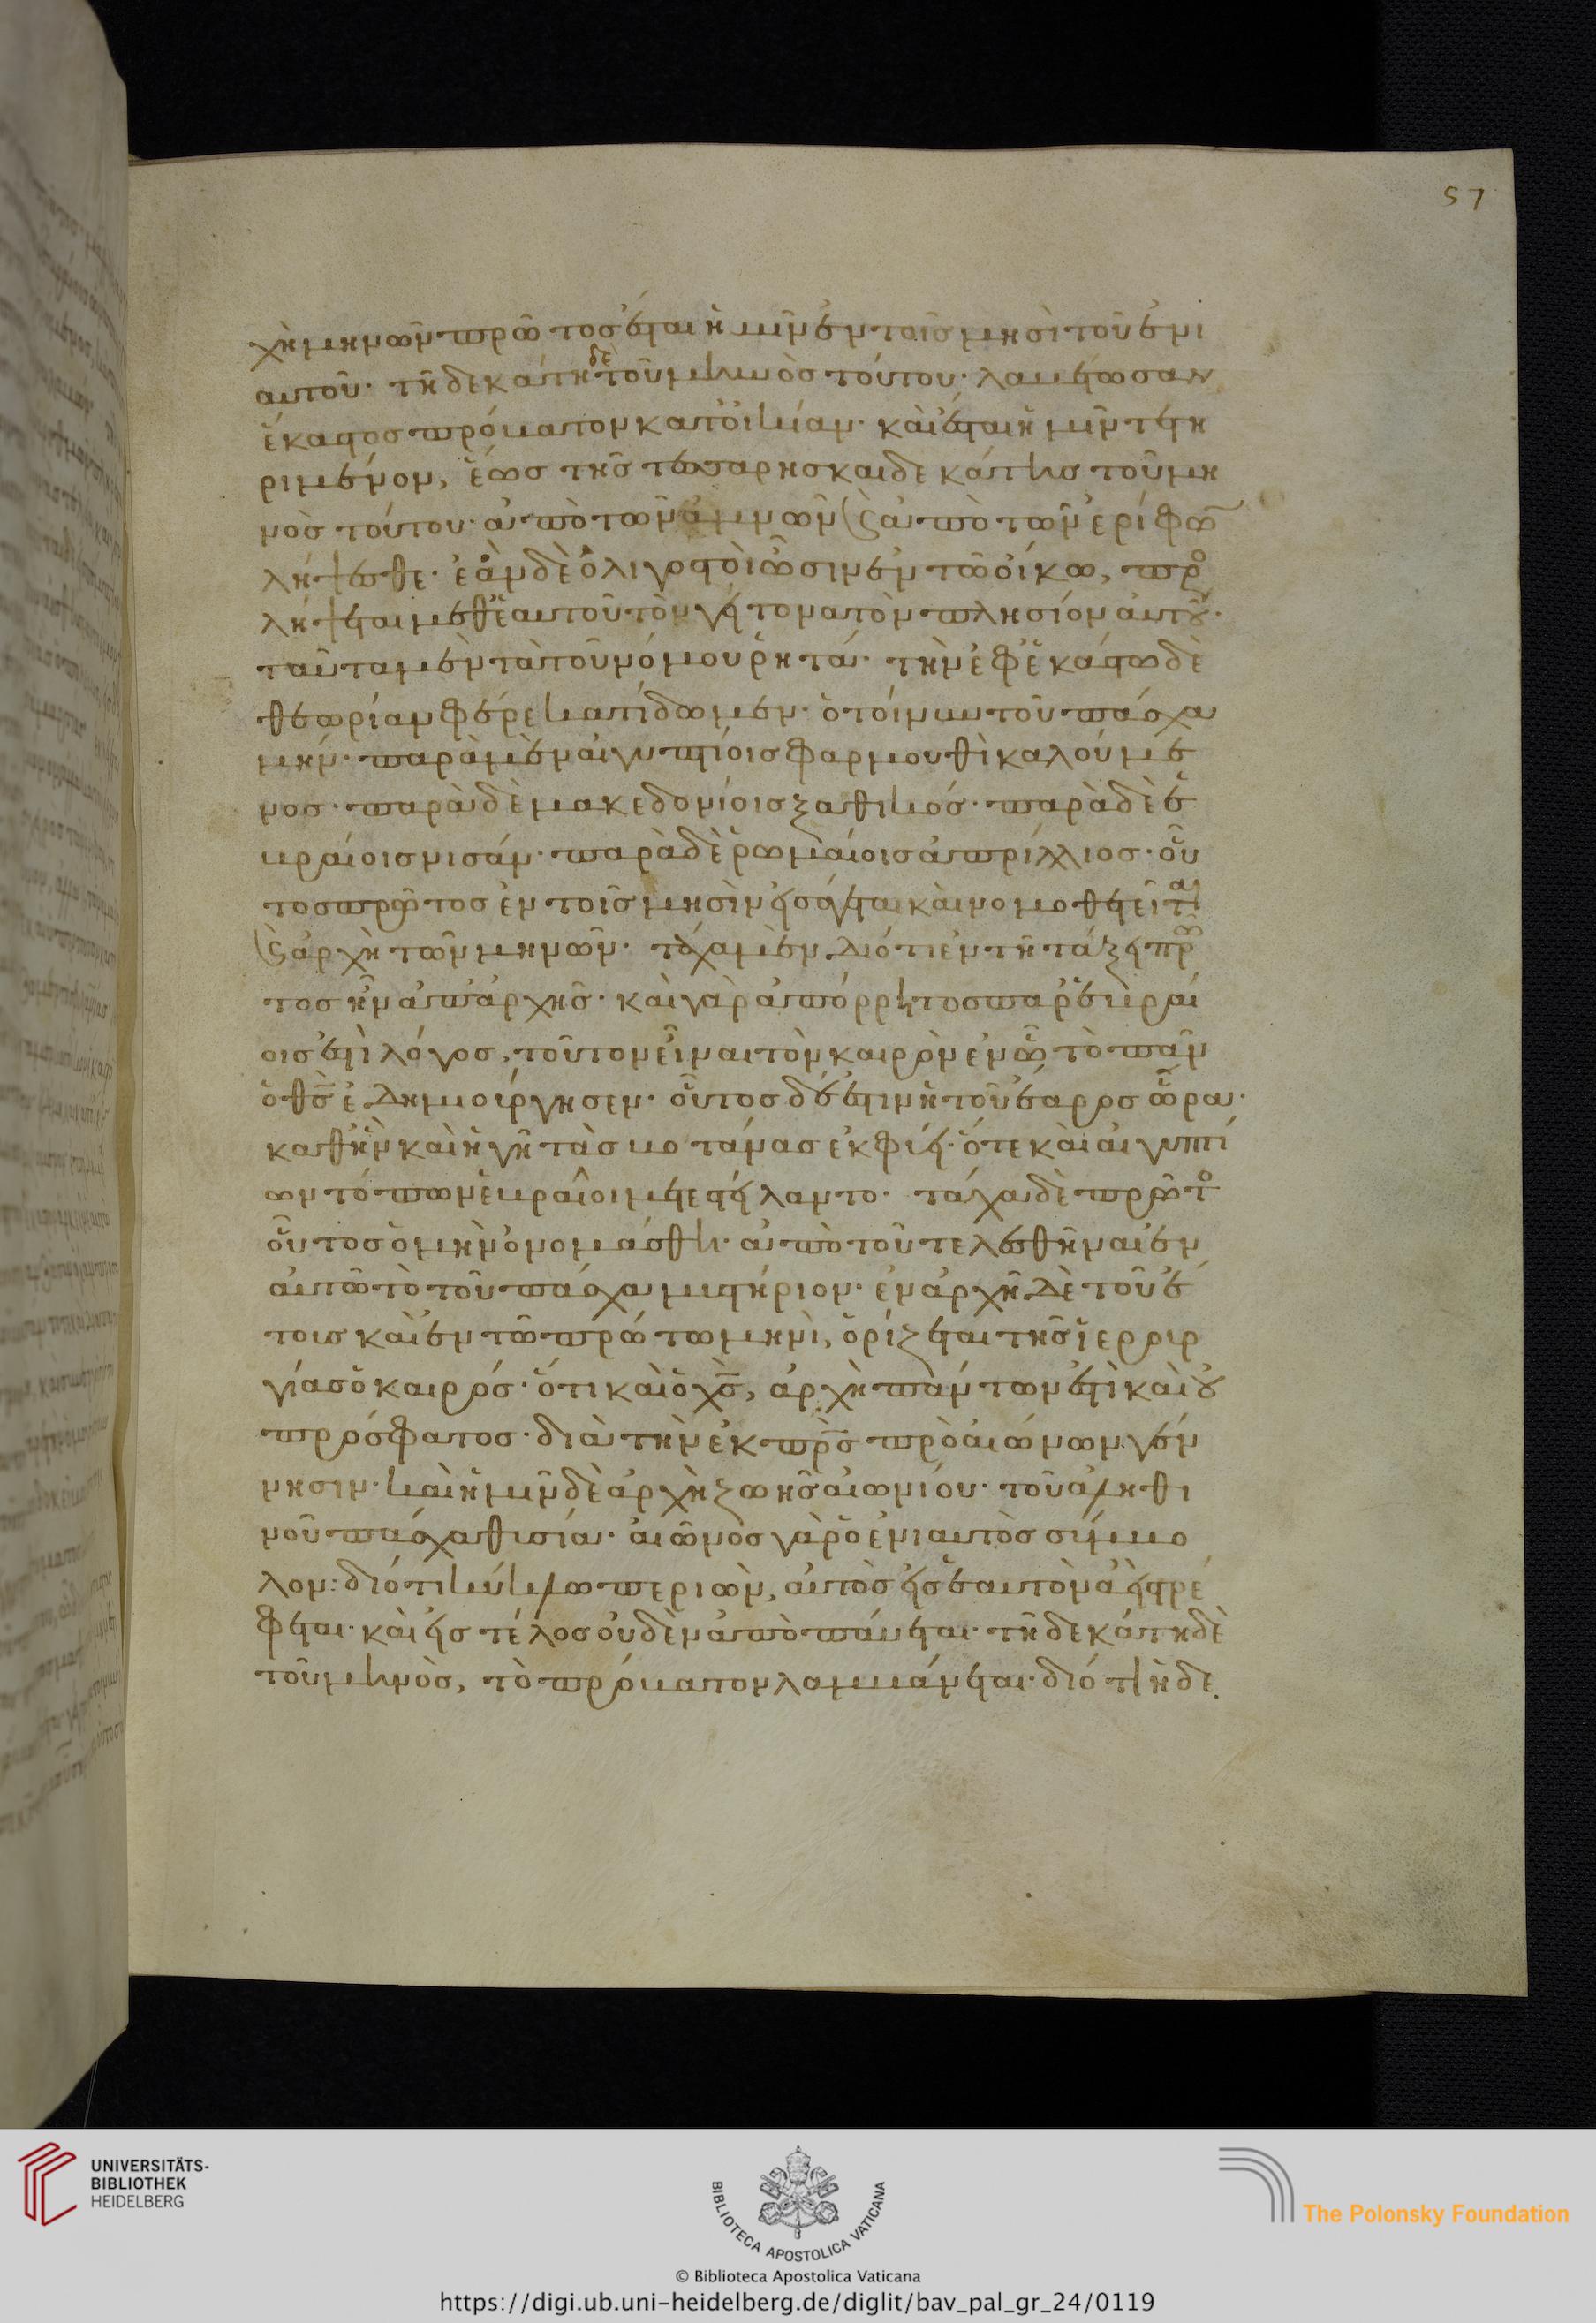 57
χὴ μηνῶν πρῶτος ἔσται ἡμῖν ἐν τοῖς μησὶ τοῦ ἐνι
αυτοῦ· τῇ δεκάτῃ δὲ τοῦ μηνὸς τούτου· λαβέτωσαν
ἕκαστος πρόβατον κατ' οἰκίαν· καὶ ἔσται ἡμῖν τετη
ριμένον, ἕως τῆς τεσσαρησκαιδεκάτης τοῦ μη
νὸς τούτου· ἀπὸ τῶν ἀμνῶν καὶ ἀπὸ τῶν ἐρίφων
λήψεσθε· ἐὰν δὲ ὀλιγοστοὶ ὦσιν ἐν τῶ οἴκω, προσ
λήψεται μεθ' ἑαυτοῦ τὸν γείτονα τὸν πλησίον αὐτοῦ·
ταῦτα μὲν τὰ τοῦ νόμου ῥητά· τὴν ἐφ' ἑκάστω δὲ
θεωρίαν φέρε κατίδωμεν· ὁ τοίνυν τοῦ πάσχα
μήν· παρὰ μὲν αἰγυπτίοις φαρμουθὶ καλούμε
νος· παρὰ δὲ μακεδονίοις ξαθικός· παρὰ δὲ ἑ
βραίοις νισάν· παρὰ δὲ ῥωμαίοις ἀπρίλλιος· οὗ
τος πρῶτος ἐν τοῖς μησὶν εἰσάγεται καὶ νομοθετεῖται
καὶ ἀρχὴ τῶν μηνῶν· τάχα μὲν διότι ἐν τῇ τάξει πρῶ
τος ἦν ἀπ' ἀρχῆς· καὶ γὰρ ἀπόρρητος παρ' ἑβραί
οις ἐστὶ λόγος, τοῦτον εἶναι τὸν καιρὸν ἐν ᾧ τὸ πᾶν
ὁ θς ἐδημιούργησεν· οὗτος δ' ἐστιν ἡ τοῦ ἔαρος ὥρα·
καθ' ἣν καὶ ἡ γῆ τὰς βοτάνας ἐκφύει· ὅτε καὶ αἰγυπτί
ων τόπων ἑβραῖοι μετεστείλαντο· τάχα δὲ πρῶτος
οὗτος ὁ μὴν ὀνομάσθη· ἀπὸ τοῦ τελεσθῆναι ἐν
αὐτῶ τὸ τοῦ πάσχα μυστήριον· ἐν ἀρχῇ δὲ τοῦ ἔ
τους καὶ ἐν τῶ πρώτω μηνὶ, ὁρίζεται τῆς ἱερουρ
γίας ὁ καιρός· ὅτι καὶ ὁ χς, ἀρχὴ πάντων ἐστὶ καὶ οὐ
πρόσφατος· διὰ τὴν ἐκ πρς πρὸ αἰώνων γέν
νησιν· καὶ ἡμῖν δὲ ἀρχὴ ζωῆς αἰωνίου· τοῦ ἀληθι
νοῦ πάσχα θυσία· αἰῶνος γὰρ ὁ ἐνιαυτὸς σύμβο
λον: διότι κύκλω περιὼν, αὐτὸς εἰς ἑαυτὸν ἀεὶ στρέ
φεται· καὶ εἰς τέλος οὐδὲν ἀποπαύεται· τῇ δεκάτῃ δὲ
τοῦ μηνὸς, τὸ πρόβατον λαμβάνεται· διότι ἡ δε
UNIVERSITÄTS-
BIBLIOTHEK
HEIDELBERG
BIBLIOTECA APOSTOLICA VATICANA
The Polonsky Foundation
© Biblioteca Apostolica Vaticana
https://digi.ub.uni-heidelberg.de/diglit/bav_pal_gr_24/0119